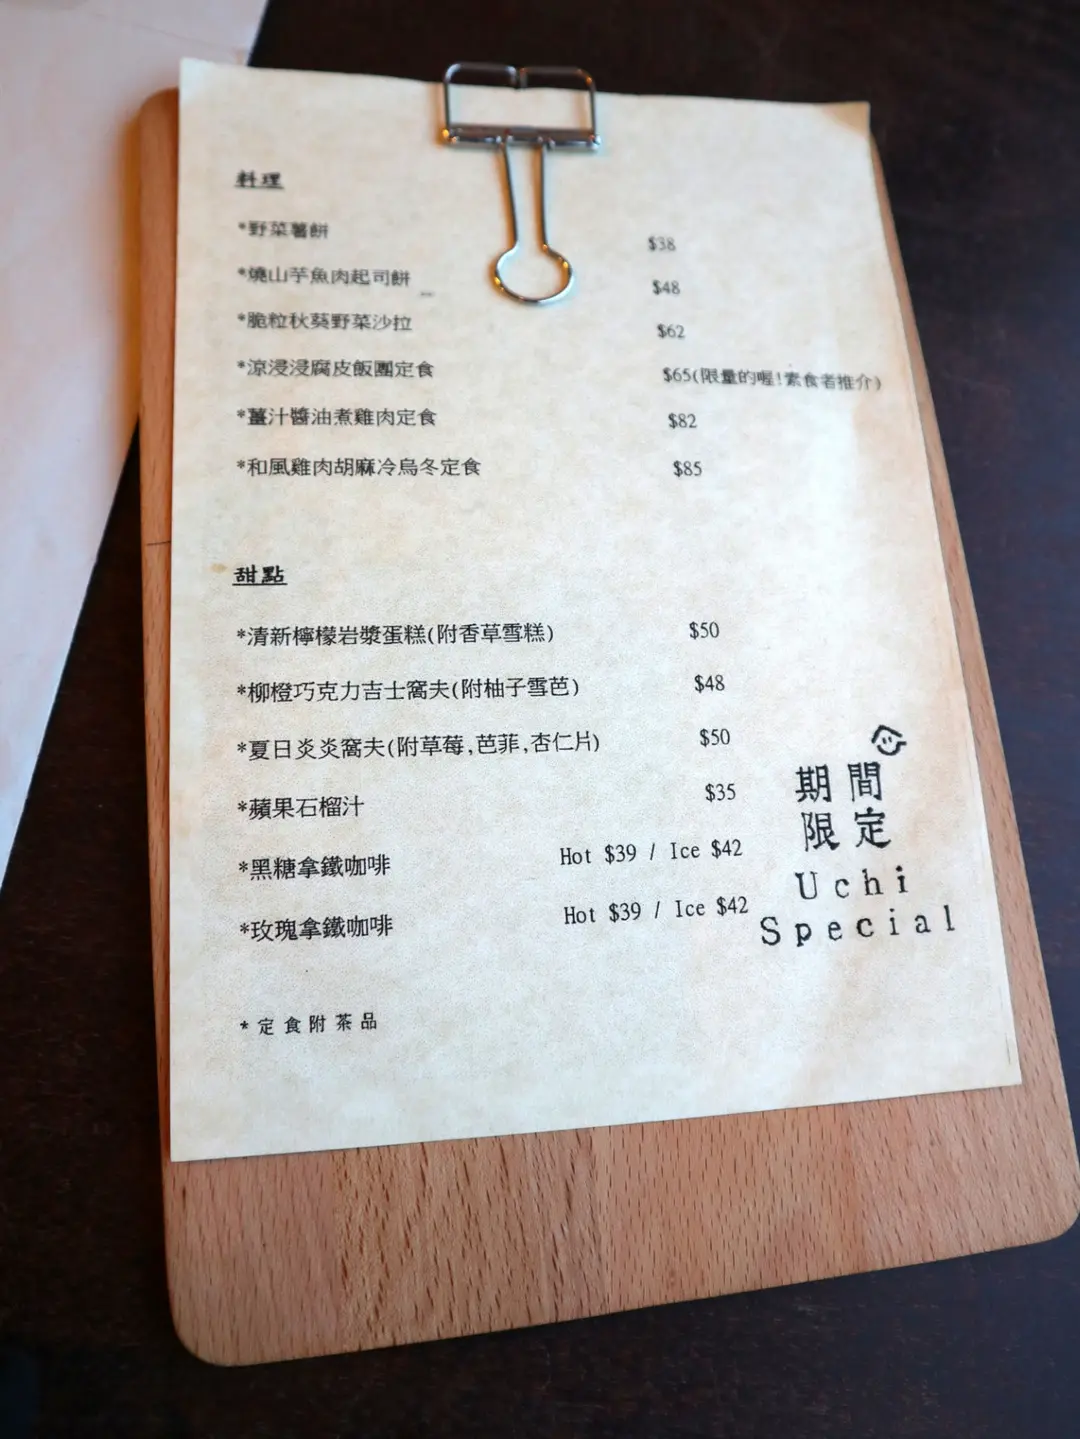 料理
*野菜薯餅 $38
*燒山芋魚肉起司餅 $48
*脆粒秋葵野菜沙拉 $62
*涼浸浸腐皮飯團定食 $65(限量的喔!素食者推介)
*薑汁醬油煮雞肉定食 $82
*和風雞肉胡麻冷烏冬定食 $85
甜點
*清新檸檬岩漿蛋糕(附香草雪糕) $50
*柳橙巧克力吉士窩夫(附柚子雪芭) $48
*夏日炎炎窩夫(附草莓,芭菲,杏仁片) $50
*蘋果石榴汁 $35
*黑糖拿鐵咖啡 Hot $39 / Ice $42
*玫瑰拿鐵咖啡 Hot $39 / Ice $42
期間
限定
Uchi
Special
*定食附茶品